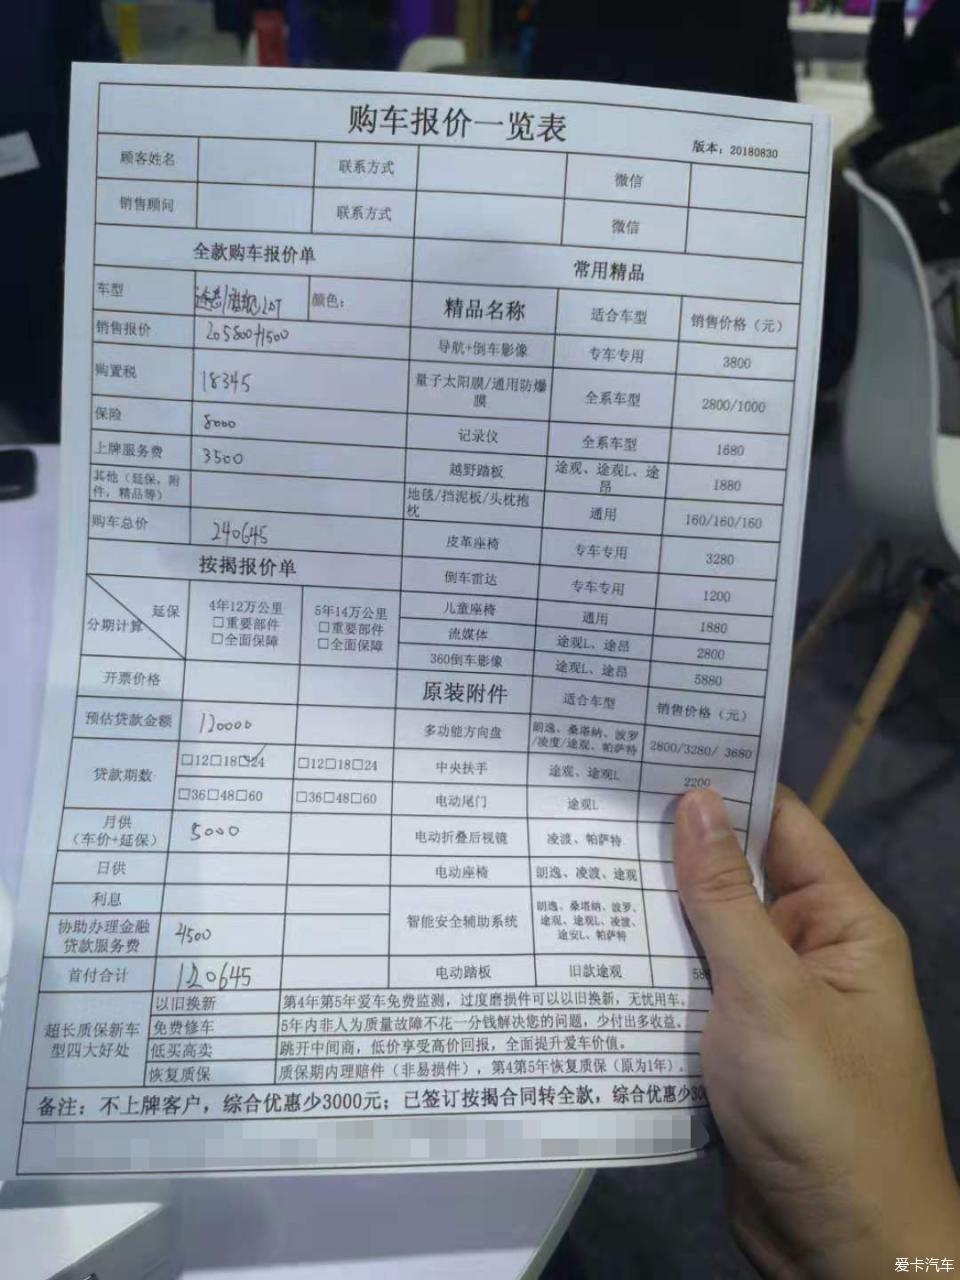 购车报价一览表
版本：20180830
顾客姓名 联系方式 微信
销售顾问 联系方式 微信
全款购车报价单 常用精品
车型 颜色： 精品名称 适合车型 销售价格（元）
销售报价 205800+1500 导航+倒车影像 专车专用 3800
购置税 18345 量子太阳膜/通用防爆膜 全系车型 2800/1000
保险 8000 记录仪 全系车型 1680
上牌服务费 3500 越野踏板 途观、途观L、途昂 1880
其他（延保，附件，精品等） 地毯/挡泥板/头枕抱枕 通用 160/160/160
购车总价 240645 皮革座椅 专车专用 3280
按揭报价单 倒车雷达 专车专用 1200
延保 分期计算 4年12万公里 □重要部件 □全面保障 5年14万公里 □重要部件 □全面保障
儿童座椅 通用 1880
流媒体 途观L、途昂 2800
360倒车影像 途观L、途昂 5880
开票价格 原装附件 适合车型 销售价格（元）
预估贷款金额 120000 多功能方向盘 朗逸、桑塔纳、波罗/凌度/途观、帕萨特 2800/3280/ 3680
贷款期数 □12□18□24 □12□18□24 中央扶手 途观、途观L 2200
□36□48□60 □36□48□60 电动尾门 途观L
月供（车价+延保） 5000 电动折叠后视镜 凌渡、帕萨特
日供 电动座椅 朗逸、凌渡、途观
利息
协助办理金融贷款服务费 4500 智能安全辅助系统 朗逸、桑塔纳、波罗、途观、途观L、凌渡、途安L、帕萨特
首付合计 120645 电动踏板 旧款途观 58
超长质保新车型四大好处
以旧换新 第4年第5年爱车免费监测，过度磨损件可以以旧换新，无忧用车。
免费修车 5年内非人为质量故障不花一分钱解决您的问题，少付出多收益。
低买高卖 跳开中间商，低价享受高价回报，全面提升爱车价值。
恢复质保 质保期内理赔件（非易损件），第4第5年恢复质保（原为1年）。
备注：不上牌客户，综合优惠少3000元；已签订按揭合同转全款，综合优惠少30
爱卡汽车